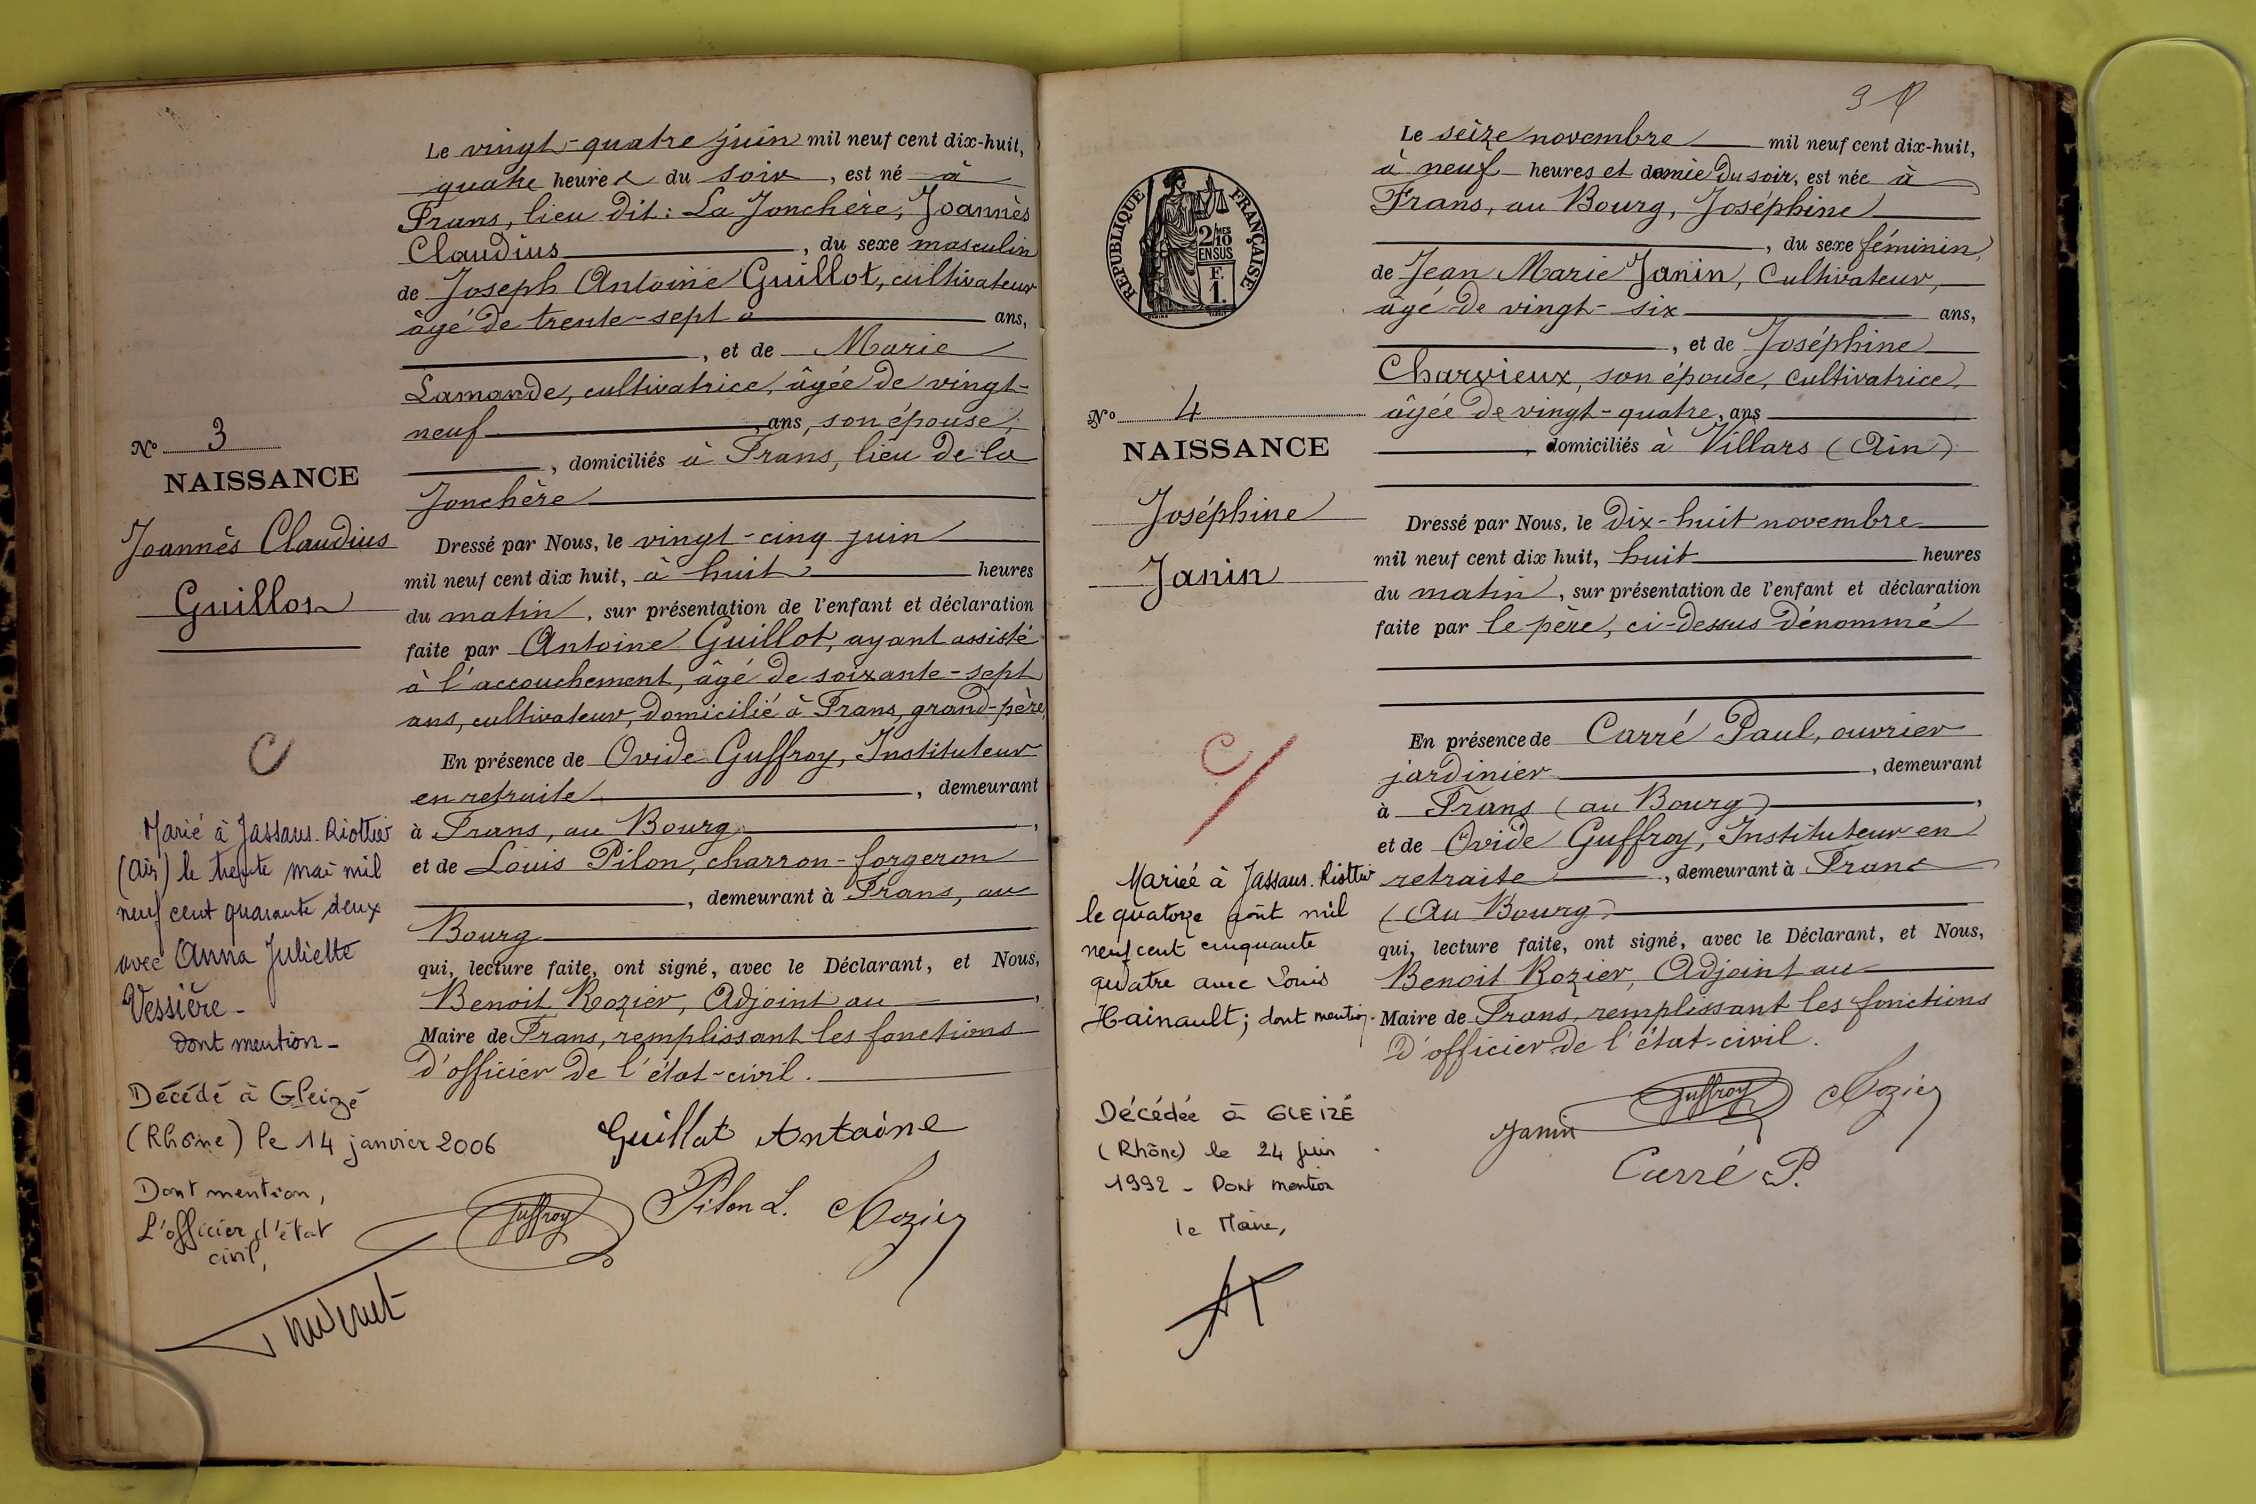 Le vingt-quatre juin mil neuf cent dix-huit,
quatre heures du soir, est né à
Frans, lieu dit: La Jonchère, Joannès
Claudius, du sexe masculin
de Joseph Antoine Guillot, cultivateur
âgé de trente-sept ans,
, et de Marie
Lamande, cultivatrice, âgée de vingt-
neuf ans, son épouse,
, domiciliés à Frans, lieu de la
Jonchère
Dressé par Nous, le vingt-cinq juin
mil neuf cent dix huit, à huit heures
du matin, sur présentation de l'enfant et déclaration
faite par Antoine Guillot, ayant assisté
à l'accouchement, âgé de soixante-sept
ans, cultivateur, domicilié à Frans, grand-père
En présence de Ovide Guffroy, Instituteur
en retraite, demeurant
à Frans, au Bourg,
et de Louis Pilon, charron-forgeron
, demeurant à Frans, au
Bourg
qui, lecture faite, ont signé, avec le Déclarant, et Nous,
Benoit Rozier, Adjoint au,
Maire de Frans, remplissant les fonctions
d'officier de l'état-civil.
Guillot Antoine
Guffroy Pilon L. Rozier
N° 3
NAISSANCE
Joannès Claudius
Guillot
C
Marié à Jassans-Riottier
(Ain) le trente mai mil
neuf cent quarante deux
avec Anna Juliette
Vessière -
Dont mention -
Décédé à Gleizé
(Rhône) le 14 janvier 2006
Dont mention,
L'officier d'état
civil,
3
RÉPUBLIQUE FRANÇAISE
2/MES
10
EN SUS
F.
1.
N° 4
NAISSANCE
Joséphine
Janin
C
Mariée à Jassans-Riottier
le quatorze août mil
neuf cent cinquante
quatre avec Louis
Hainault; dont mention.
Décédée à GLEIZÉ
(Rhône) le 24 juin
1992 - Dont mention
le Maire,
Le seize novembre mil neuf cent dix-huit,
à neuf heures et demie du soir, est née à
Frans, au Bourg, Joséphine
, du sexe féminin,
de Jean Marie Janin, Cultivateur,
âgé de vingt-six ans,
, et de Joséphine
Charvieux, son épouse, cultivatrice,
âgée de vingt-quatre, ans
, domiciliés à Villars (Ain)
Dressé par Nous, le dix-huit novembre
mil neuf cent dix huit, huit heures
du matin, sur présentation de l'enfant et déclaration
faite par le père, ci-dessus dénommé
En présence de Carré Paul, ouvrier
jardinier, demeurant
à Frans (au Bourg),
et de Ovide Guffroy, Instituteur en
retraite, demeurant à Frans
(Au Bourg)
qui, lecture faite, ont signé, avec le Déclarant, et Nous,
Benoit Rozier, Adjoint au
Maire de Frans, remplissant les fonctions
d'officier de l'état-civil.
Janin Guffroy Rozier
Carré P.